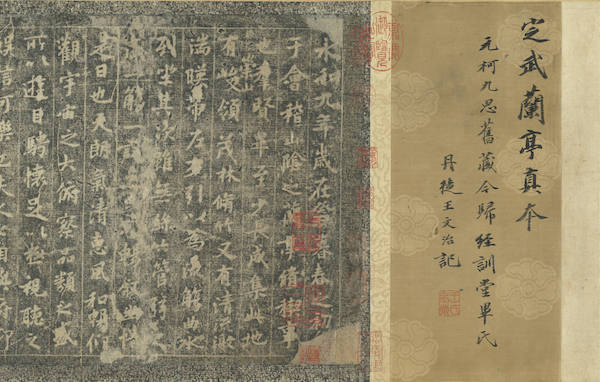 定武蘭亭真本
元柯九思舊藏今歸經訓堂畢氏
丹徒王文治記
永和九年歲在癸暮春之初
于會稽山陰之蘭亭脩稧事
也羣賢畢至少長咸集此地
有崇山峻領茂林脩竹又有清流激
湍暎帶左右引以為流觴曲水
列坐其次雖無絲竹管弦之
盛一觴一詠亦足以暢敘幽情
是日也天朗氣清惠風和暢仰
觀宇宙之大俯察品類之盛
所以遊目騁懷足以極視聽之
娛信可樂也夫人之相與俯仰